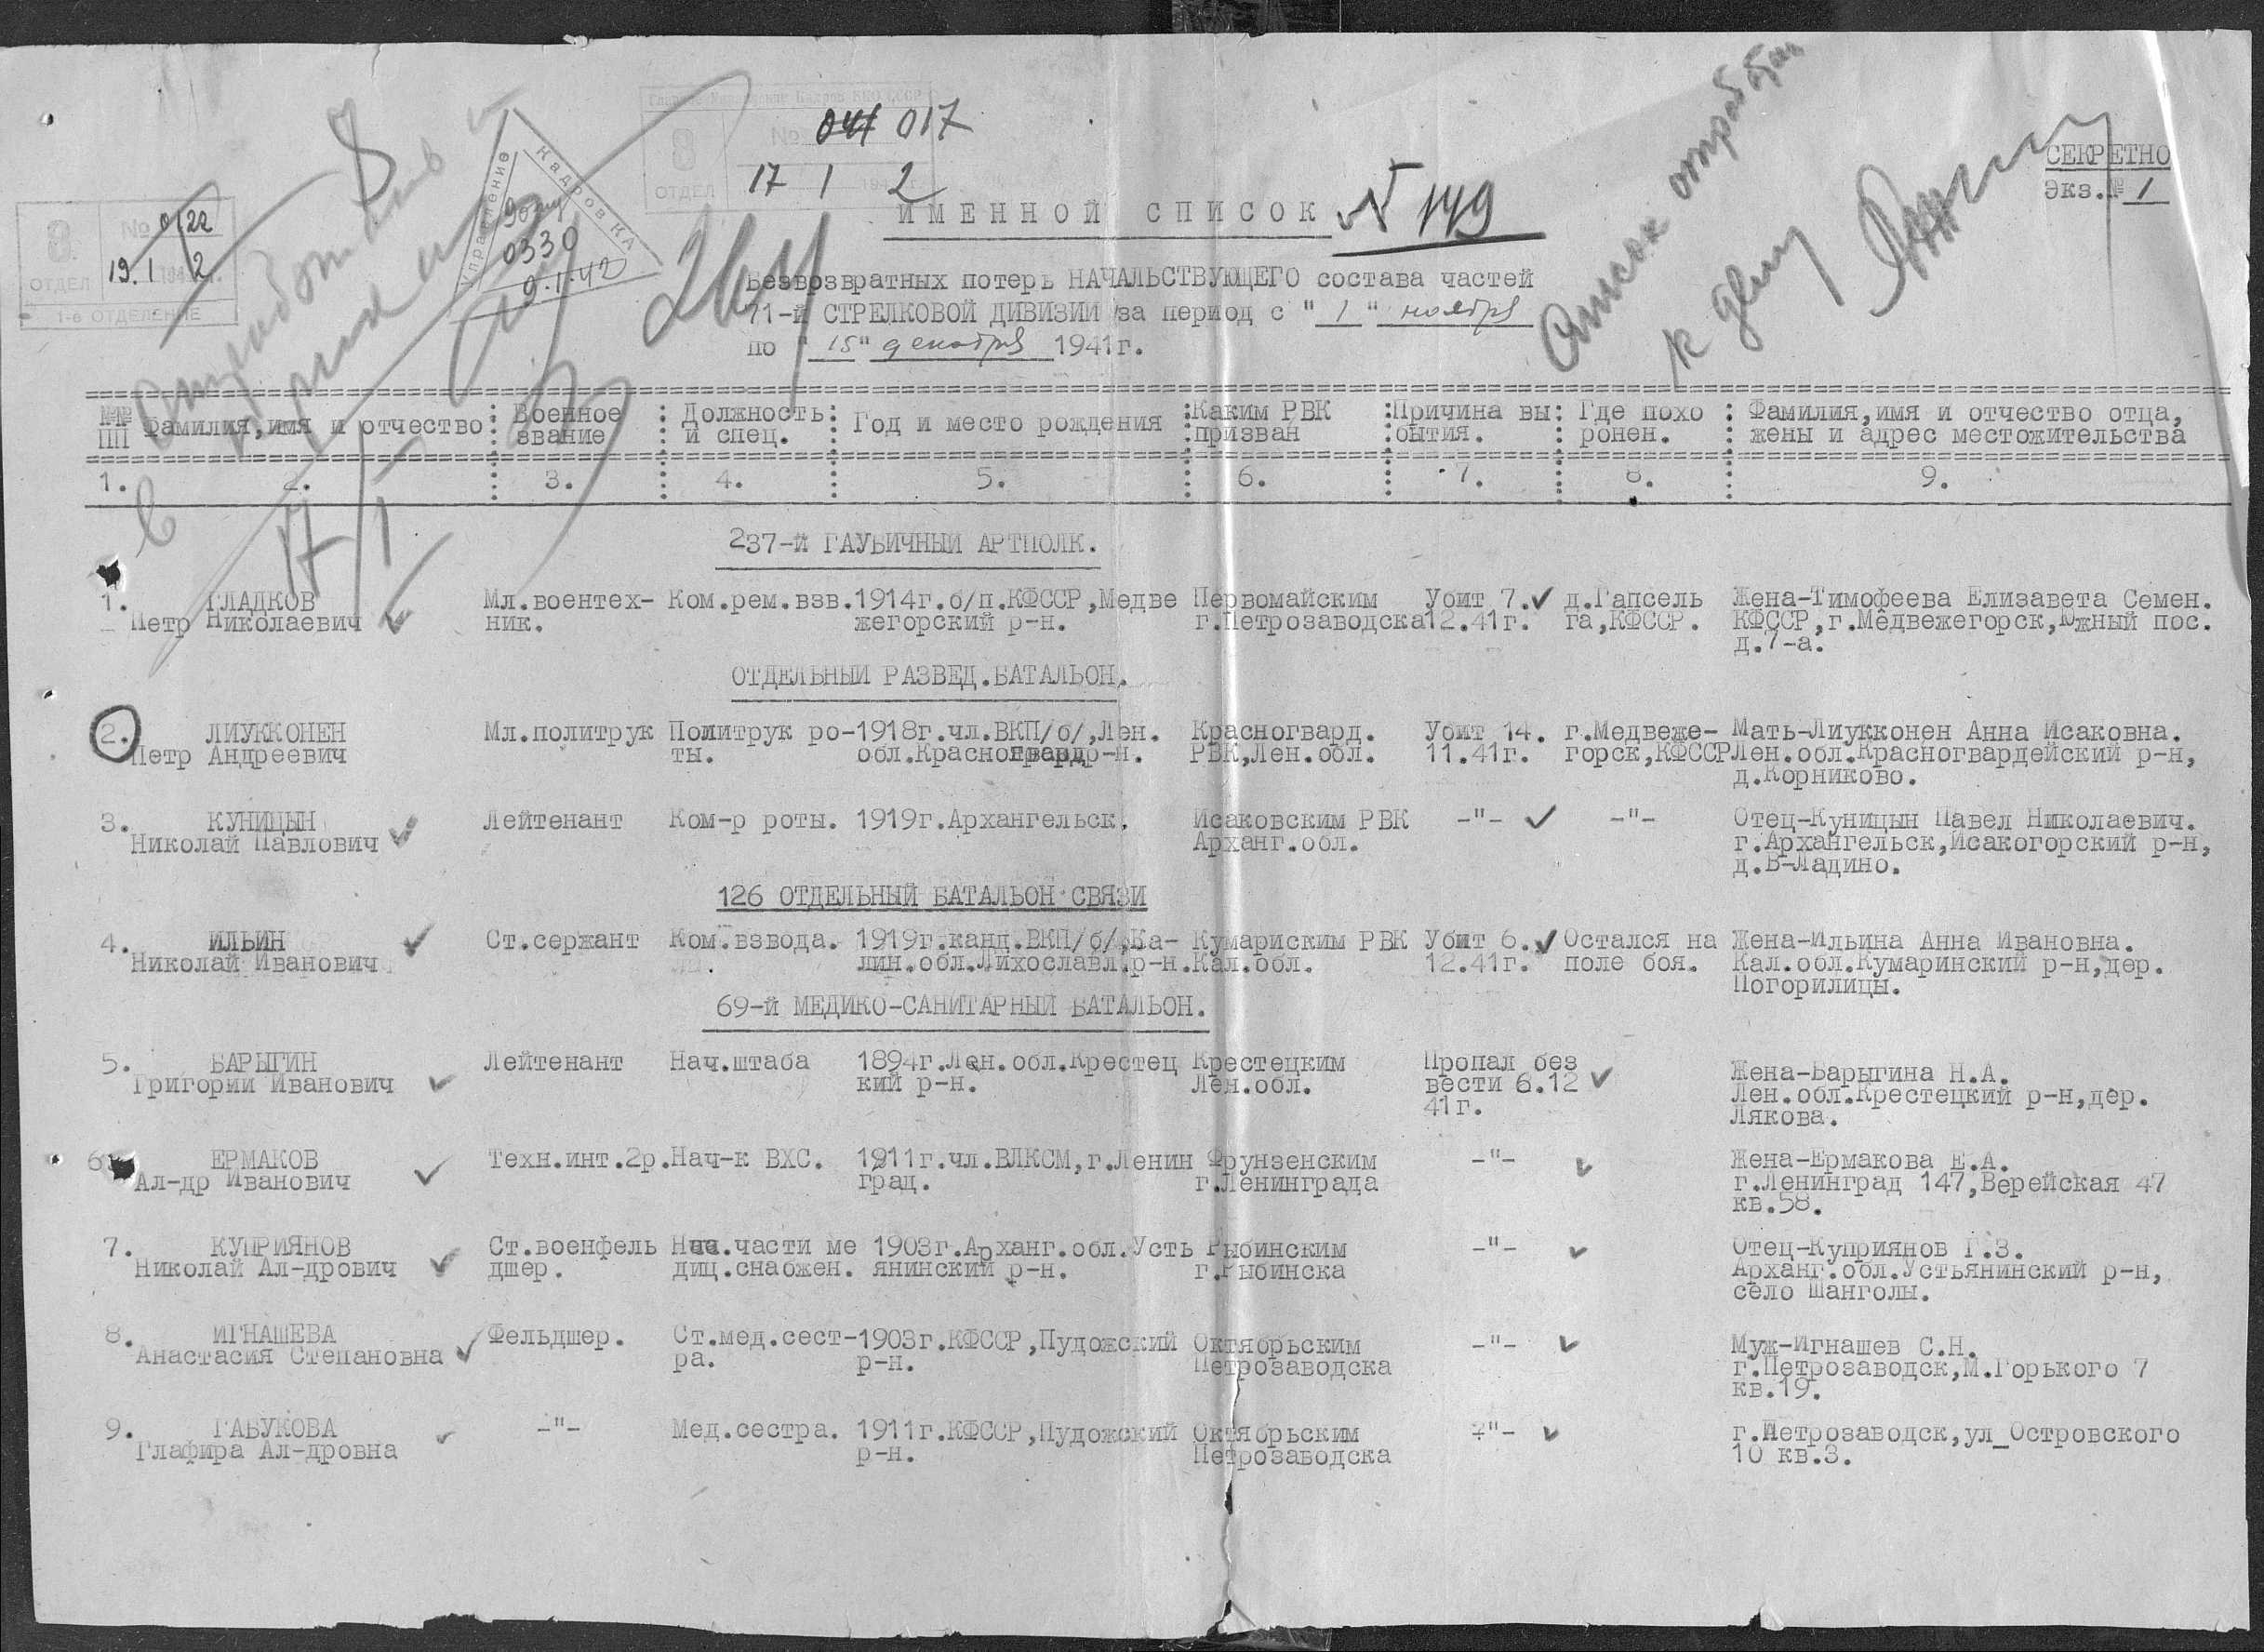 Главное Управление Кадров НКО СССР
3
ОТДЕЛ
№ 041 017
17 1 194 2 г.
СЕКРЕТНО
Экз.№ 1
Управление
Кадров КА
0330
9.1.42
3
ОТДЕЛ
№ 0122
19.1 194 2 г.
1-е ОТДЕЛЕНИЕ
17/I
Список отработан
к делу
ИМЕННОЙ СПИСОК № 149
Безвозвратных потерь НАЧАЛЬСТВУЮЩЕГО состава частей
71-й СТРЕЛКОВОЙ ДИВИЗИИ за период с "1" ноября
по "15" декабря 1941г.
№№ ПП : Фамилия,имя и отчество : Военное звание : Должность и спец. : Год и место рождения : Каким РВК призван : Причина вы бытия. : Где похо ронен. : Фамилия,имя и отчество отца, жены и адрес местожительства
1. 2. 3. 4. 5. 6. 7. 8. 9.
237-й ГАУБИЧНЫЙ АРТПОЛК.
1. ГЛАДКОВ Мл.воентех- Ком.рем.взв. 1914г.б/п.КФССР,Медве Первомайским Убит 7. д.Гапсель Жена-Тимофеева Елизавета Семен.
Петр Николаевич ник. жегорский р-н. г.Петрозаводска 12.41г. га,КФССР. КФССР,г.Медвежегорск,Южный пос.
д.7-а.
ОТДЕЛЬНЫЙ РАЗВЕД.БАТАЛЬОН.
2. ЛИУККОНЕН Мл.политрук Политрук ро- 1918г.чл.ВКП/б/,Лен. Красногвард. Убит 14. г.Медвеже- Мать-Лиукконен Анна Исаковна.
Петр Андреевич ты. обл.Красногвардр-н. РВК,Лен.обл. 11.41г. горск,КФССР Лен.обл.Красногвардейский р-н,
д.Корниково.
3. КУНИЦЫН Лейтенант Ком-р роты. 1919г.Архангельск. Исаковским РВК -"- -"- Отец-Куницын Павел Николаевич.
Николай Павлович Арханг.обл. г.Архангельск,Исакогорский р-н,
д.В-Ладино.
126 ОТДЕЛЬНЫЙ БАТАЛЬОН СВЯЗИ
4. ИЛЬИН Ст.сержант Ком.взвода. 1919г.канд.ВКП/б/,Ка- Кумариским РВК Убит 6. Остался на Жена-Ильина Анна Ивановна.
Николай Иванович лин.обл.Лихославл.р-н. Кал.обл. 12.41г. поле боя. Кал.обл.Кумаринский р-н,дер.
Погорилицы.
69-й МЕДИКО-САНИТАРНЫЙ БАТАЛЬОН.
5. БАРЫГИН Лейтенант Нач.штаба 1894г.Лен.обл.Крестец Крестецким Пропал без
Григорий Иванович кий р-н. Лен.обл. вести 6.12 Жена-Барыгина Н.А.
41г. Лен.обл.Крестецкий р-н,дер.
Лякова.
6. ЕРМАКОВ Техн.инт.2р. Нач-к ВХС. 1911г.чл.ВЛКСМ,г.Ленин Фрунзенским -"- Жена-Ермакова Е.А.
Ал-др Иванович град. г.Ленинграда г.Ленинград 147,Верейская 47
кв.58.
7. КУПРИЯНОВ Ст.военфель Нач.части ме 1903г.Арханг.обл.Усть Рыбинским -"- Отец-Куприянов Г.З.
Николай Ал-дрович дшер. диц.снабжен. янинский р-н. г.Рыбинска Арханг.обл.Устьянинский р-н,
село Шанголы.
8. ИГНАШЕВА Фельдшер. Ст.мед.сест- 1903г.КФССР,Пудожский Октябрьским -"- Муж-Игнашев С.Н.
Анастасия Степановна ра. р-н. Петрозаводска г.Петрозаводск,М.Горького 7
кв.19.
9. ГАБУКОВА -"- Мед.сестра. 1911г.КФССР,Пудожский Октябрьским -"- г.Петрозаводск,ул_Островского
Глафира Ал-дровна р-н. Петрозаводска 10 кв.3.